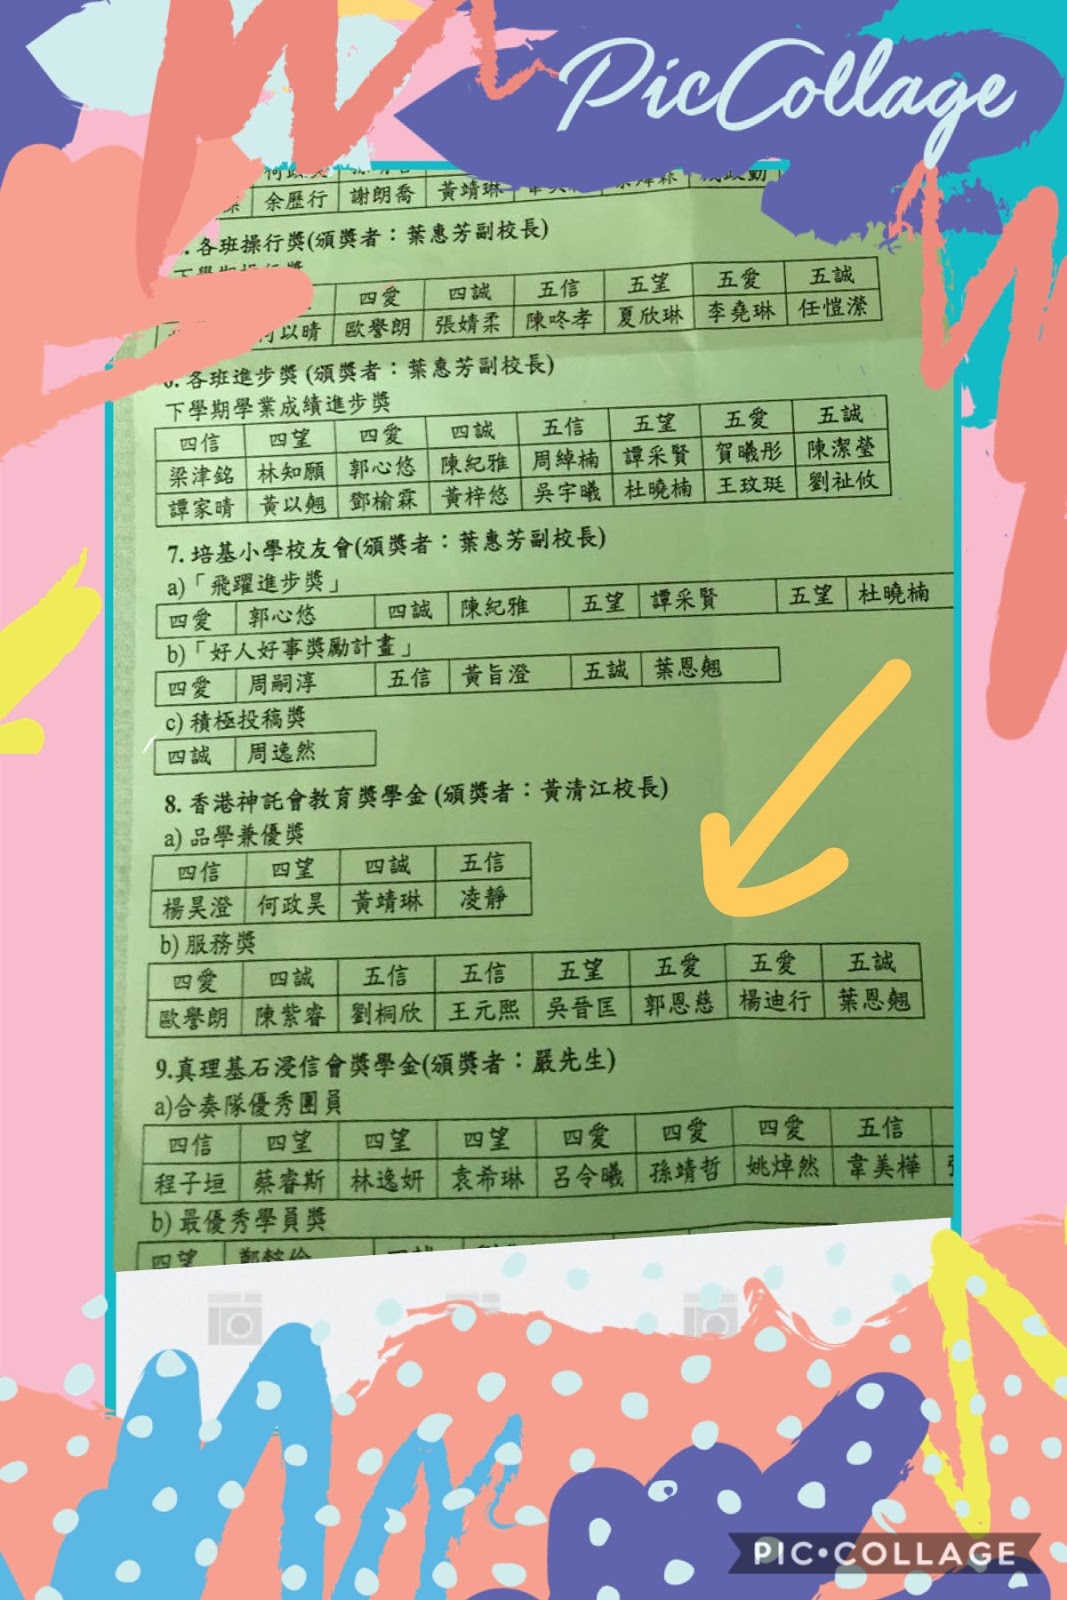 PicCollage
余歷行 謝朗喬 黃靖琳
各班操行獎(頒獎者：葉惠芳副校長)
四愛 四誠 五信 五望 五愛 五誠
何以晴 歐譽朗 張婧柔 陳咚孝 夏欣琳 李堯琳 任愷瀠
各班進步獎 (頒獎者：葉惠芳副校長)
下學期學業成績進步獎
四信 四望 四愛 四誠 五信 五望 五愛 五誠
梁津銘 林知願 郭心悠 陳紀雅 周綽楠 譚采賢 賀曦彤 陳潔瑩
譚家晴 黃以翹 鄧榆霖 黃梓悠 吳宇曦 杜曉楠 王玟珽 劉祉攸
7. 培基小學校友會(頒獎者：葉惠芳副校長)
a)「飛躍進步獎」
四愛 郭心悠 四誠 陳紀雅 五望 譚采賢 五望 杜曉楠
b)「好人好事獎勵計畫」
四愛 周嗣淳 五信 黃旨澄 五誠 葉恩翹
c) 積極投稿獎
四誠 周逸然
8. 香港神託會教育獎學金 (頒獎者：黃清江校長)
a) 品學兼優獎
四信 四望 四誠 五信
楊昊澄 何政昊 黃靖琳 凌靜
b) 服務獎
四愛 四誠 五信 五信 五望 五愛 五愛 五誠
歐譽朗 陳紫睿 劉桐欣 王元熙 吳晉匡 郭恩慈 楊迪行 葉恩翹
9.真理基石浸信會獎學金(頒獎者：嚴先生)
a)合奏隊優秀團員
四信 四望 四望 四望 四愛 四愛 四愛 五信
程子垣 蔡睿斯 林逸妍 袁希琳 呂令曦 孫靖哲 姚焯然 韋美樺
b) 最優秀學員獎
四望
PIC•COLLAGE